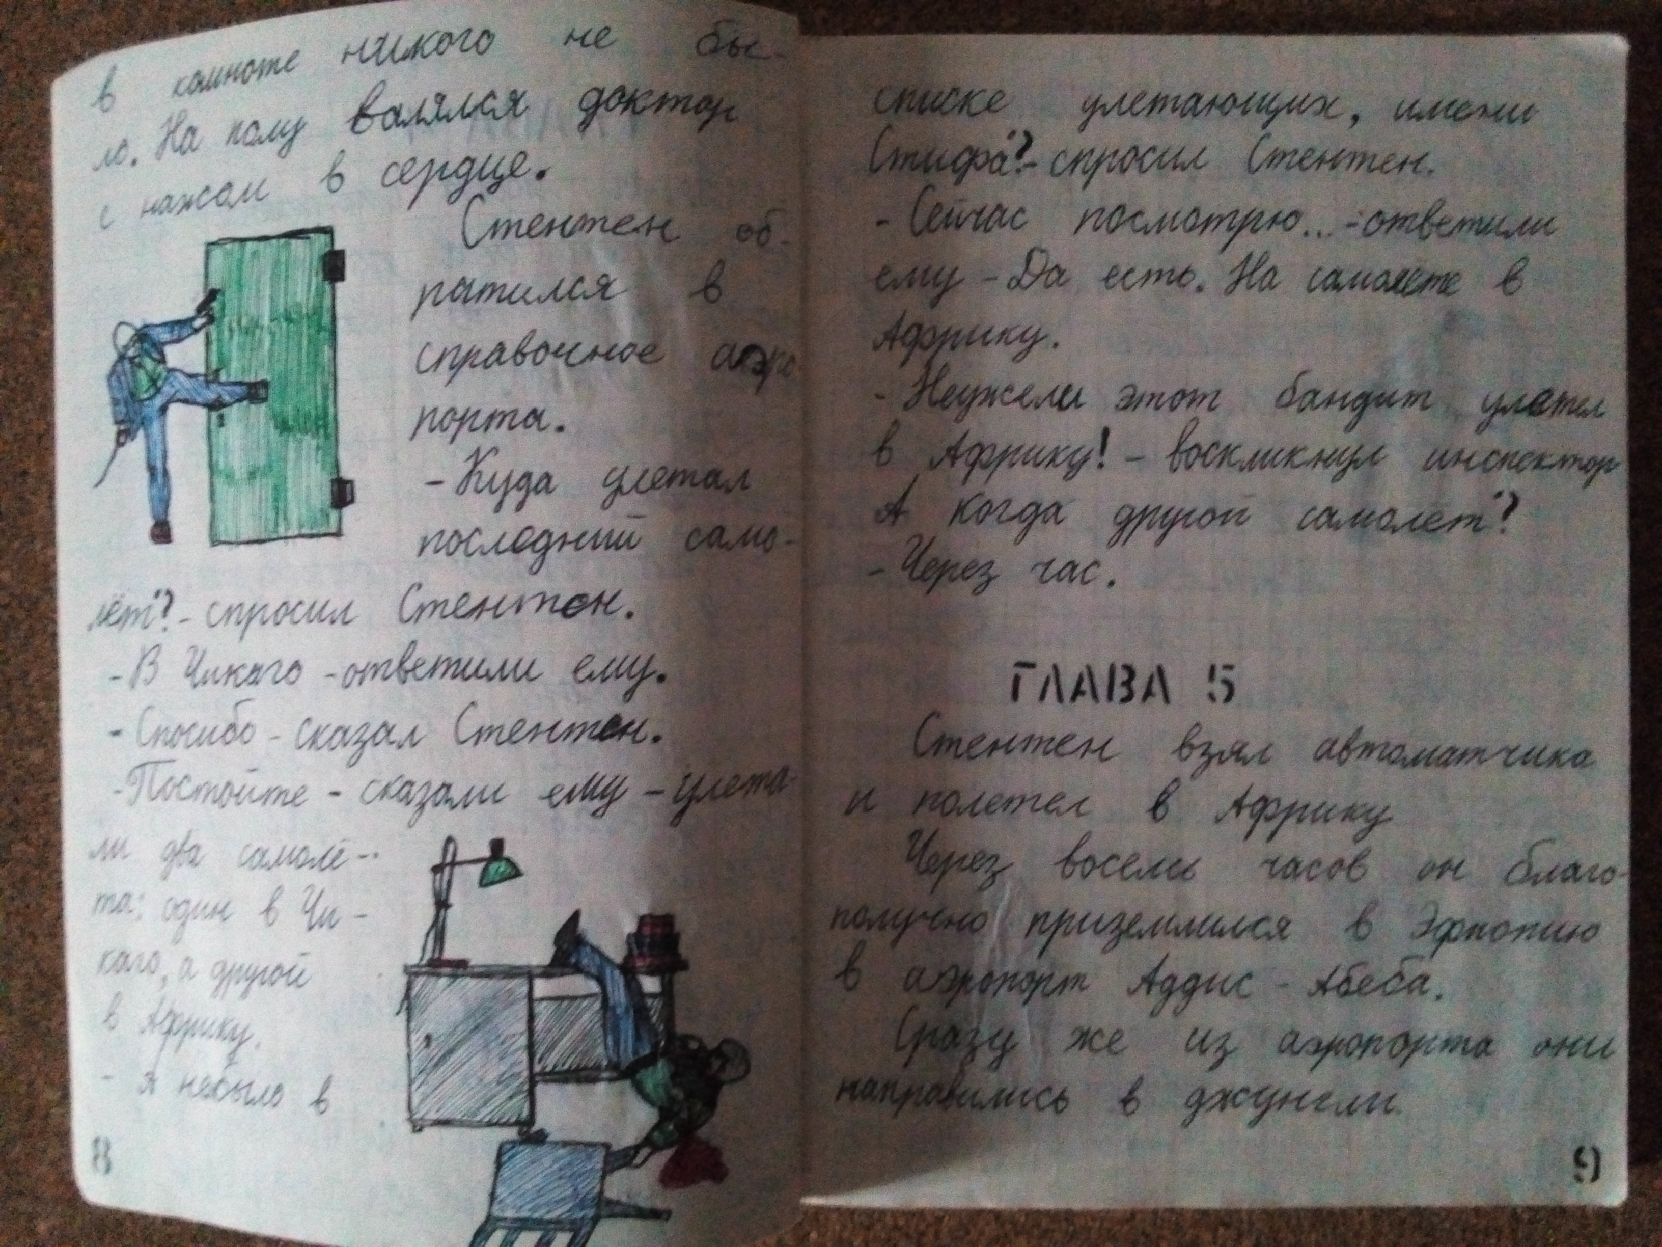 в комноте никого не бы-
ло. На полу валялся доктор
с нажом в сердце.
Стентен об-
ратился в
справочное аэро
порта.
-Куда улетал
последний само-
лёт? - спросил Стентен.
- В Чикаго - ответили ему.
- Спосибо - сказал Стентен.
- Постойте - сказали ему - улета-
ли два самолё-
та: один в Чи-
каго, а другой
в Африку.
- А небыло в
8
списке улетающих, имени
Стифа? - спросил Стентен.
- Сейчас посмотрю... - ответили
ему - Да есть. На самолёте в
Африку.
- Неужели этот бандит улетел
в Африку! - воскликнул инспектор
А когда другой самолёт?
- Через час.
ГЛАВА 5
Стентен взял автоматчика
и полетел в Африку
Через восемь часов он благо-
получно приземлился в Эфиопию
в аэропорт Аддис - Абеба.
Сразу же из аэропорта они
направились в джунгли.
9